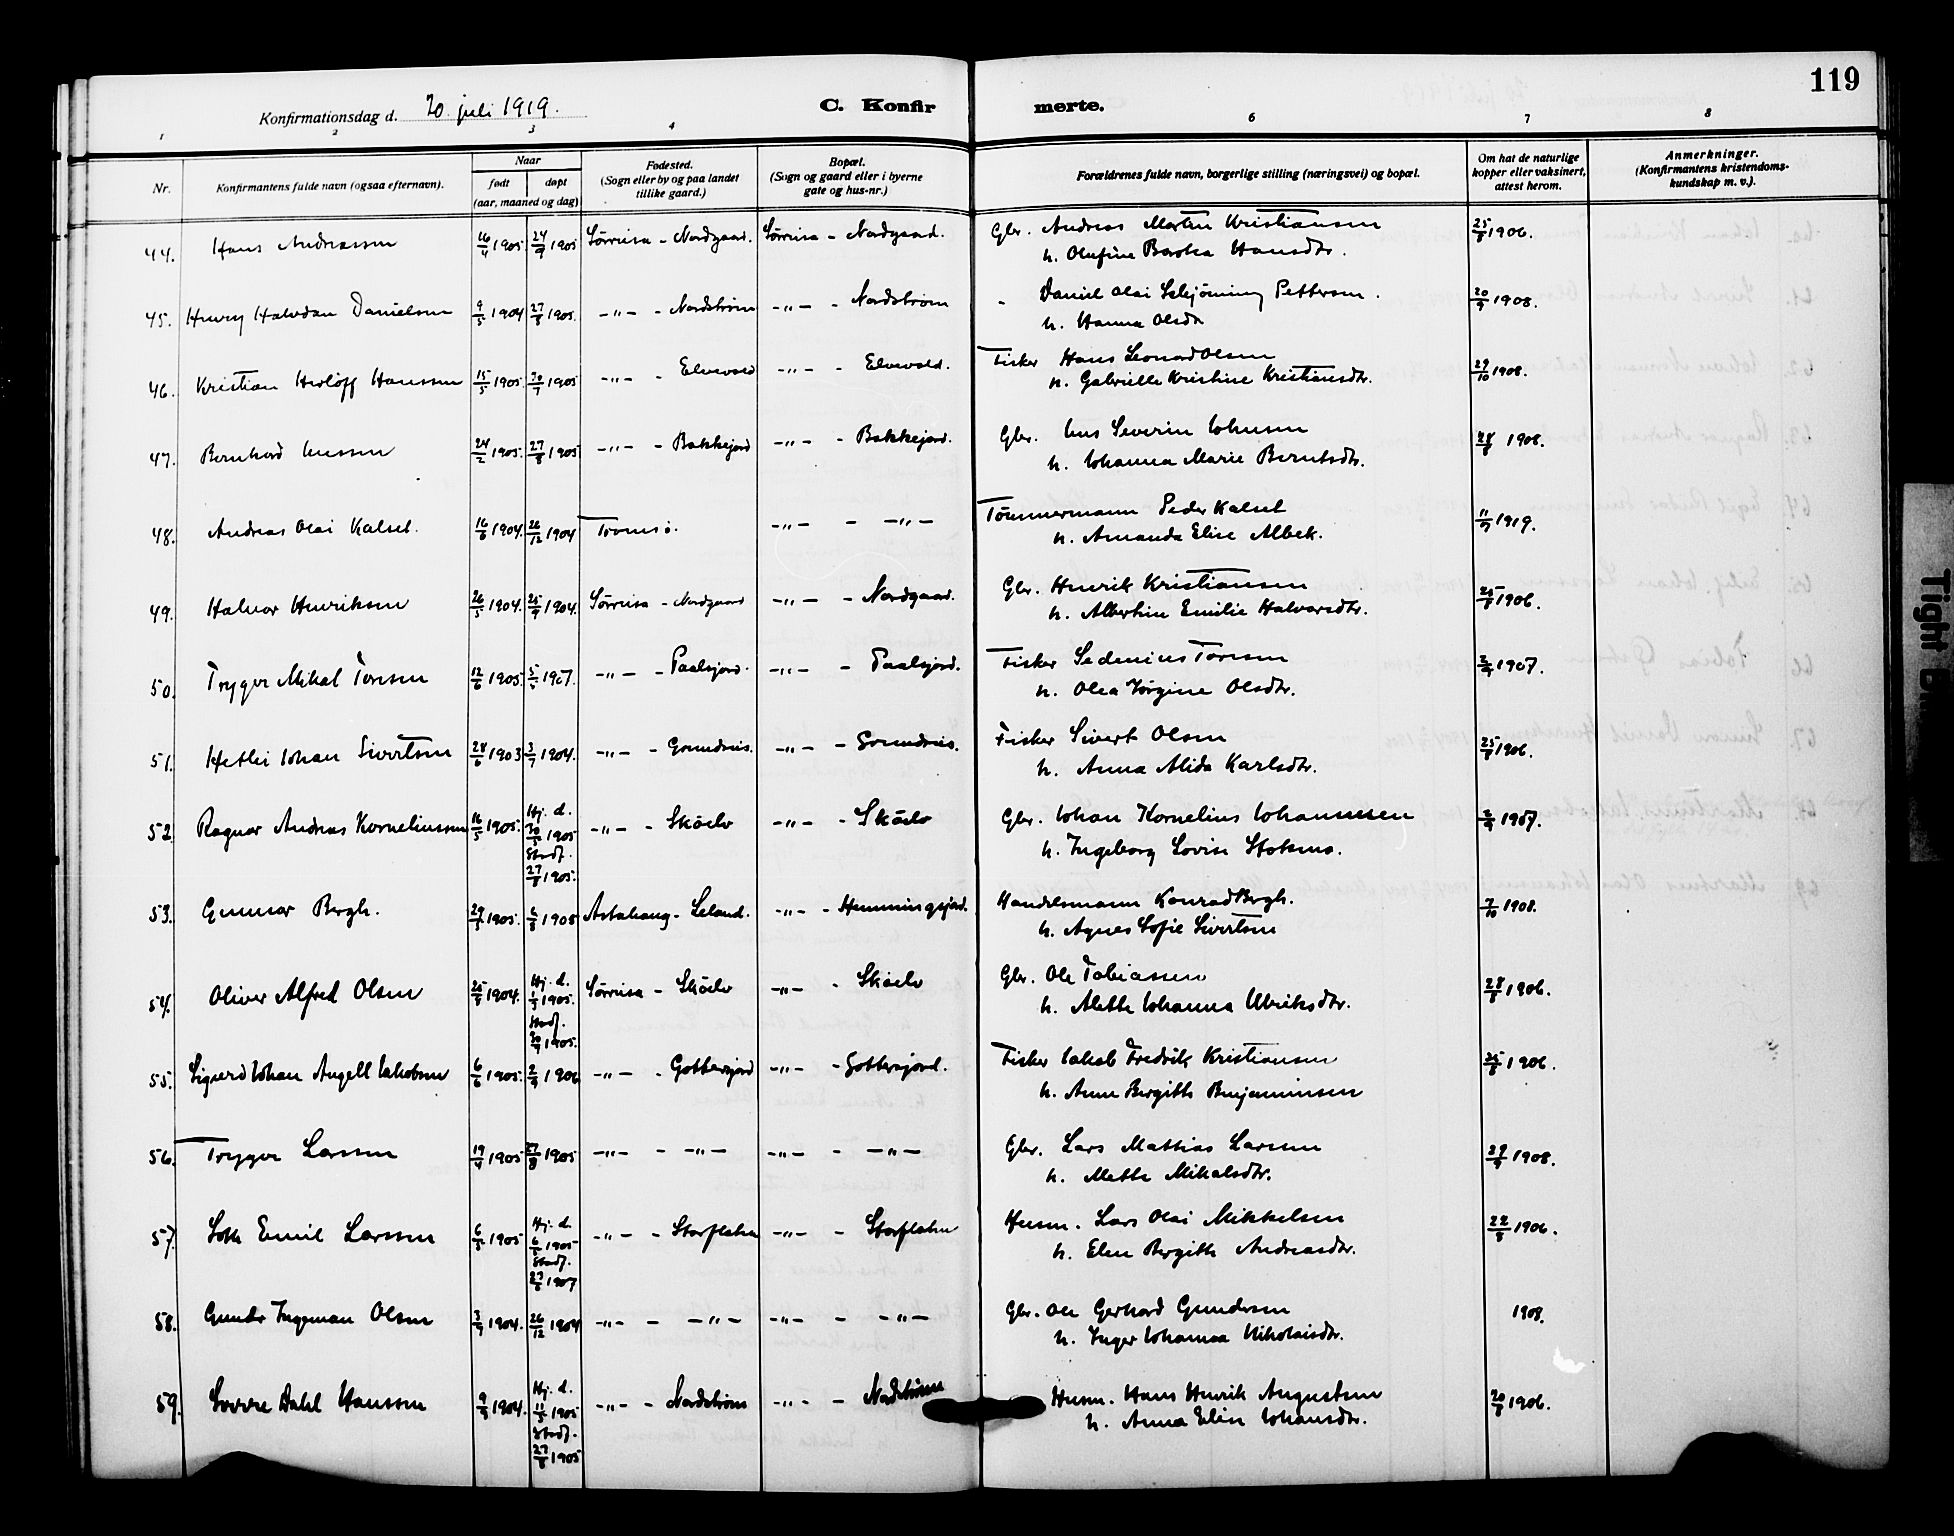 119
Konfirmationsdag d. 20. juli 1919.
C. Konfirmerte.
1 2 3 4 6 7 8
Nr. Konfirmantens fulde navn (ogsaa efternavn). Naar født døpt (aar, maaned og dag) Fødested. (Sogn eller by og paa landet tillike gaard.) Bopæl. (Sogn og gaard eller i byerne gate og hus-nr.) Forældrenes fulde navn, borgerlige stilling (næringsvei) og bopæl. Om hat de naturlige kopper eller vaksinert, attest herom. Anmerkninger. (Konfirmantens kristendomskundskap m. v.).
44. Hans Andreassen 16/4 1905. 24/9 1905 Sørreisa - Nordgaard. Sørreisa - Nordgaard. Gbr. Andreas Martin Kristiansen 25/8 1906.
h. Olufine Bartea Hansdtr.
45. Henry Halvdan Danielsen 9/5 1904 27/8 1905. -"- - Nordstrøm -"- - Nordstrøm - Daniel Olai Skjöning Pettersen. 20/9 1908.
h. Hanna Olsdr
46. Kristian Herlöff Hanssen 15/5 1905. 30/7 1905 -"- - Elvevold -"- - Elvevold. Fisker Hans Leonard Olsen 29/10 1908.
h. Gabrielle Kristine Kristiansdtr.
47. Bernhard Jenssen 24/2 1905. 27/8 1905 -"- - Bakkejord -"- - Bakkejord. Gbr. Jens Severin Johnsen 28/8 1908.
h. Johanna Marie Berntsdtr.
48. Andreas Olai Kalset. 16/6 1904. 26/12 1904 Tromsø. -"- - -"- Tömmermann Peder Kalset 11/7 1919.
h. Amanda Elise Albek.
49. Halvor Henriksen 26/5 1904. 25/9 1904. Sørreisa - Nordgaard -"- - Nordgaard. Gbr. Henrik Kristiansen 25/8 1906.
h. Albertine Emilie Halvorsdtr.
50. Trygve Mikal Toresen 12/6 1905 5/5 1907. -"- - Paalsjord. -"- - Paalsjord. Fisker Sedenius Toresen 2/9 1907.
h. Olea Jørgine Olsdtr.
51. Hetlei Johan Sivertsen 28/6 1903 3/7 1904. -"- - Grundreis. -"- - Grundreis. Fisker Sivert Olsen 25/8 1906.
h. Anna Alida Karlsdtr.
52. Ragnar Andreas Korneliussen 16/5 1905. Hj. d. 30/5 1905 Stadf. 27/8 1905. -"- - Sköelv -"- - Sköelv Gbr. Johan Kornelius Johannesen 2/9 1907.
h. Ingeborg Lovise Stokmo.
53. Gunnar Bergh. 29/5 1905. 6/8 1905 Astahaug - Leland. -"- - Hemmingsjord. Handelsmann Konrad Bergh. 7/10 1908.
h. Agnes Sofie Sivertsen
54. Oliver Alfred Olsen 25/8 1904. Hj. d. 1/5 1905. Stadf. 30/7 1905. Sørreisa - Sköelv -"- - Sköelv Gbr. Ole Tobiassen 28/8 1906.
h. Alette Johanna Ulriksdtr.
55. Sigurd Johan Angell Jakobsen 6/6 1905. 2/9 1906 -"- - Gottersjord -"- - Gottersjord. Fisker Jakob Fredrik Kristiansen 25/8 1906.
h. Anne Bergitte Benjaminsen
56. Trygve Larssen 19/4 1905 27/8 1905 -"- - -"- -"- - -"- Gbr. Lars Mattias Larsen 29/9 1908.
h. Mette Mikalsdtr.
57. Emil Larssen 6/5 1905 Hj. d. 6/5 1905 Stadf. 23/6 1907 -"- - Storflaten -"- - Storflaten Husm. Lars Olai Mikkelsen 22/8 1906.
h. Elen Bergitte Andreasdtr.
58. Gunder Ingeman Olsen 3/9 1904. 26/12 1904 -"- - -"- -"- - -"- Gbr. Ole Gerhard Gundersen 1908.
h. Inger Johanna Nikolaisdtr.
59. Sverre Dahl Hanssen 9/9 1904. Hj. d. 11/5 1905 Stadf. 27/8 1905 -"- - Nordstrøm -"- - Nordstrøm Husm. Hans Henrik Augustsen 20/8 1906.
h. Anna Elise Johansdtr.
Tight